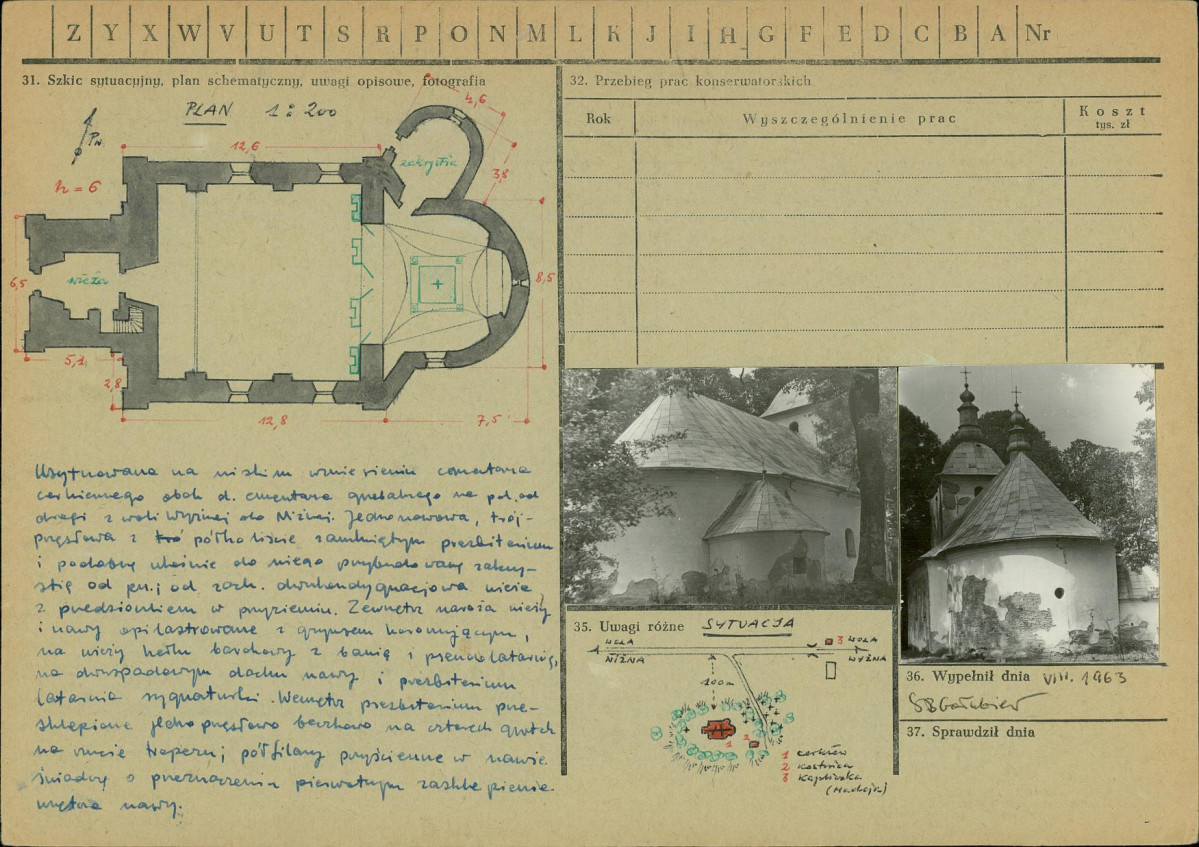 Z Y X W V U T S R P O N M L K J I H G F E D C B A Nr
31. Szkic sytuacyjny, plan schematyczny, uwagi opisowe, fotografia
PLAN 1:200
Pn
4,6
12,6
zakrystia
3,8
h = 6
6,5
wieża
8,5
5,1
2,8
12,8
7,5
Usytuowana na niskim wzniesieniu cmentarza
cerkiennego obok d. cmentarza grzebalnego na pd. od
drogi z Woli Wyżnej do Niżnej. Jednonawowa, trój-
przęsłowa z półkoliście zamkniętym prezbiterium
i podobny ukośnie do niego przybudowaną zakry-
stię od pn.; od zach. dwukondygnacjowa wieża
z przedsionkiem w przyziemiu. Zewnątrz naroża wieży
i nawy opilastrowane z gzymsem koronującym,
na wieży hełm barokowy z banią i pseudolatarnią,
na dwuspadowym dachu nawy i prezbiterium
latarnia sygnaturki. Wewnątrz prezbiterium prze-
sklepione jednoprzęsłowo beczkowo na czterech gurtach
na rzucie trapezu; półfilary przyścienne w nawie
świadczą o przeznaczeniu pierwotnym zasklepienie
wnętrza nawy.
32. Przebieg prac konserwatorskich
Rok
Wyszczególnienie prac
Koszt
tys. zł
35. Uwagi różne SYTUACJA
WOLA
NIŻNA
3 WOLA
WYŻNA
100m
1
2
1 cerkiew
2 kostnica
3 kapliczka
36. Wypełnił dnia VIII. 1963
37. Sprawdził dnia